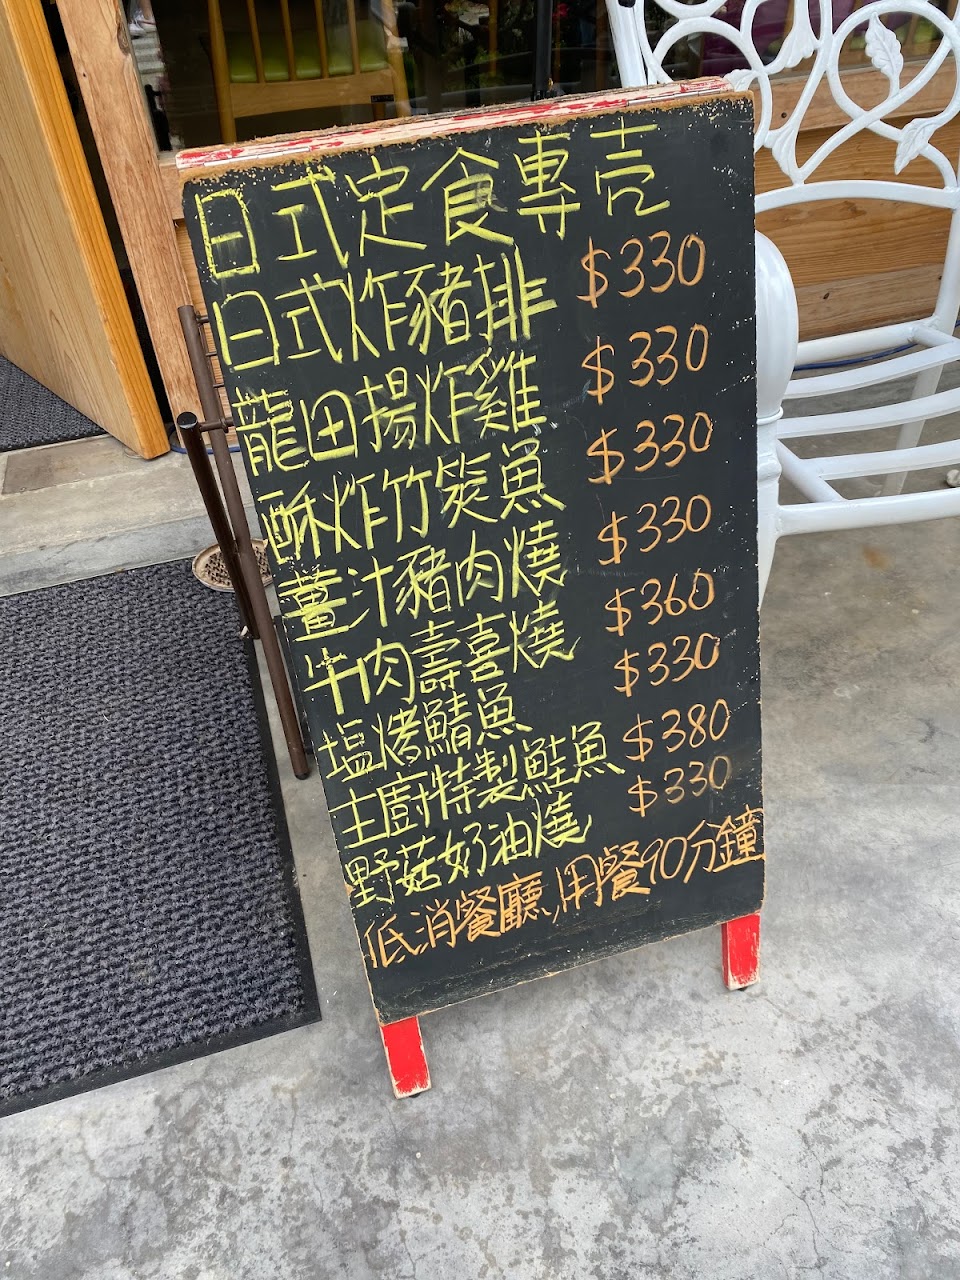 日式定食專売
日式炸豬排 $330
龍田揚炸雞 $330
酥炸竹筴魚 $330
薑汁豬肉燒 $330
牛肉壽喜燒 $360
塩烤鯖魚 $330
主廚特製鮭魚 $380
野菇奶油燒 $330
低消餐廳,用餐90分鐘